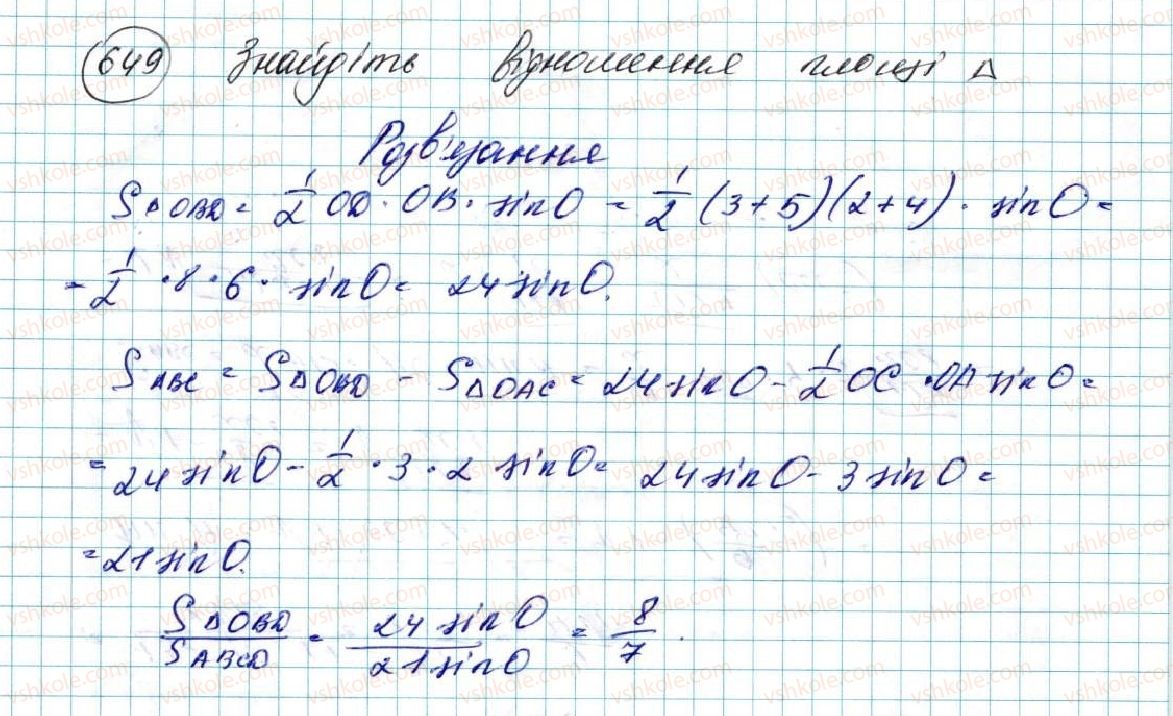 649 Знайдіть відношення площі Δ
Розв'язання
SΔOBD = 1/2 OD · OB · sin O = 1/2 (3+5)(2+4) · sin O =
= 1/2 · 8 · 6 · sin O = 24 sin O.
S ABC = SΔOBD - SΔOAC = 24 sin O - 1/2 OC · OA sin O =
= 24 sin O - 1/2 · 3 · 2 sin O = 24 sin O - 3 sin O =
= 21 sin O.
SΔOBD / SABCD = 24 sin O / 21 sin O = 8/7.